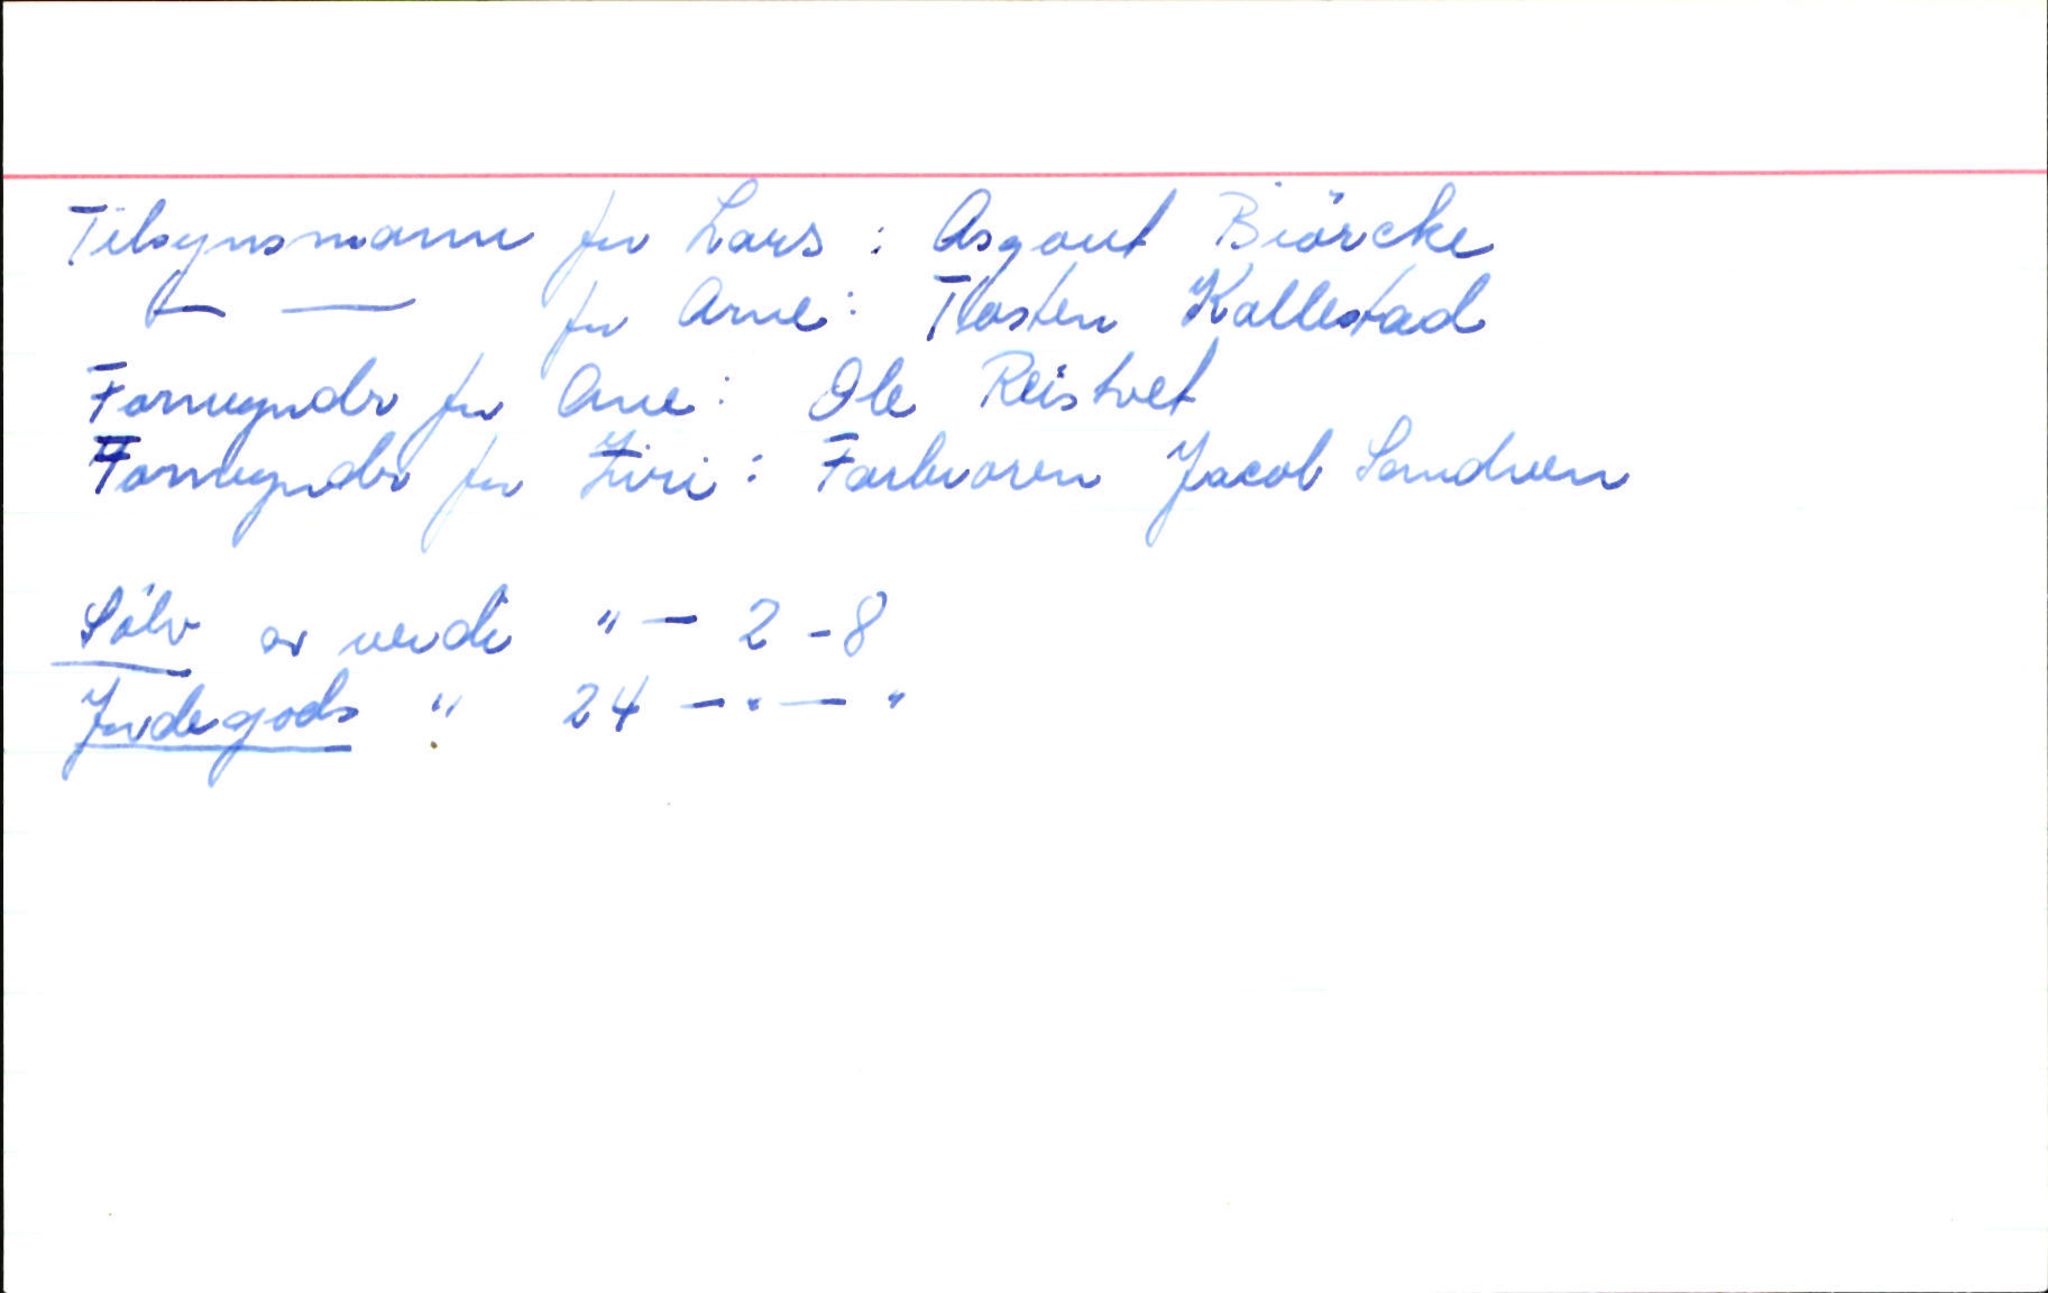 Tilsynsmann for Lars : Asgout Biörcke
— — for Arne : Tlosten Kallestad
Formyndr for Ane : Ole Reistvet
Formyndr for Ziri : Farbroren Jacob Sandven
Sölv er verdi " — 2 - 8
Jordegods " 24 — " — "